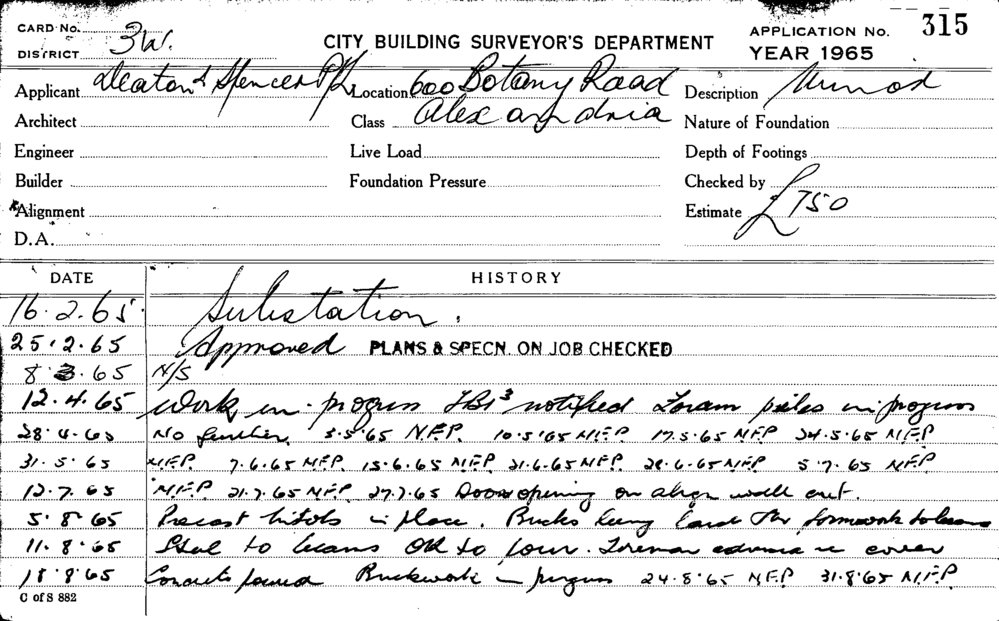 CARD No. APPLICATION No. 315
DISTRICT 3W. CITY BUILDING SURVEYOR'S DEPARTMENT YEAR 1965
Applicant Deaton & Spencer P/L Location 600 Botany Road Description
Architect Class Alexandria Nature of Foundation
Engineer Live Load Depth of Footings
Builder Foundation Pressure Checked by
*Alignment Estimate £750
D.A.
DATE HISTORY
16.2.65 Substation.
25.2.65 Approved PLANS & SPECN. ON JOB CHECKED
8.3.65 N/S
12.4.65 Work in progress notified in progress
28.4.65 No further. 3.5.65 N.F.P. 10.5.65 N.F.P. 17.5.65 N.F.P. 24.5.65 N.F.P.
31.5.65 N.F.P. 7.6.65 N.F.P. 15.6.65 N.F.P. 21.6.65 N.F.P. 28.6.65 N.F.P. 5.7.65 N.F.P.
12.7.65 N.F.P. 21.7.65 N.F.P. 27.7.65 Door opening on align wall cut.
5.8.65 Precast lintols in place. Bricks being laid formwork to beams
11.8.65 Steel to beams OK to pour. Foreman cover
18.8.65 Concrete poured Brickwork in progress 24.8.65 N.F.P. 31.8.65 N.F.P.
C of S 882